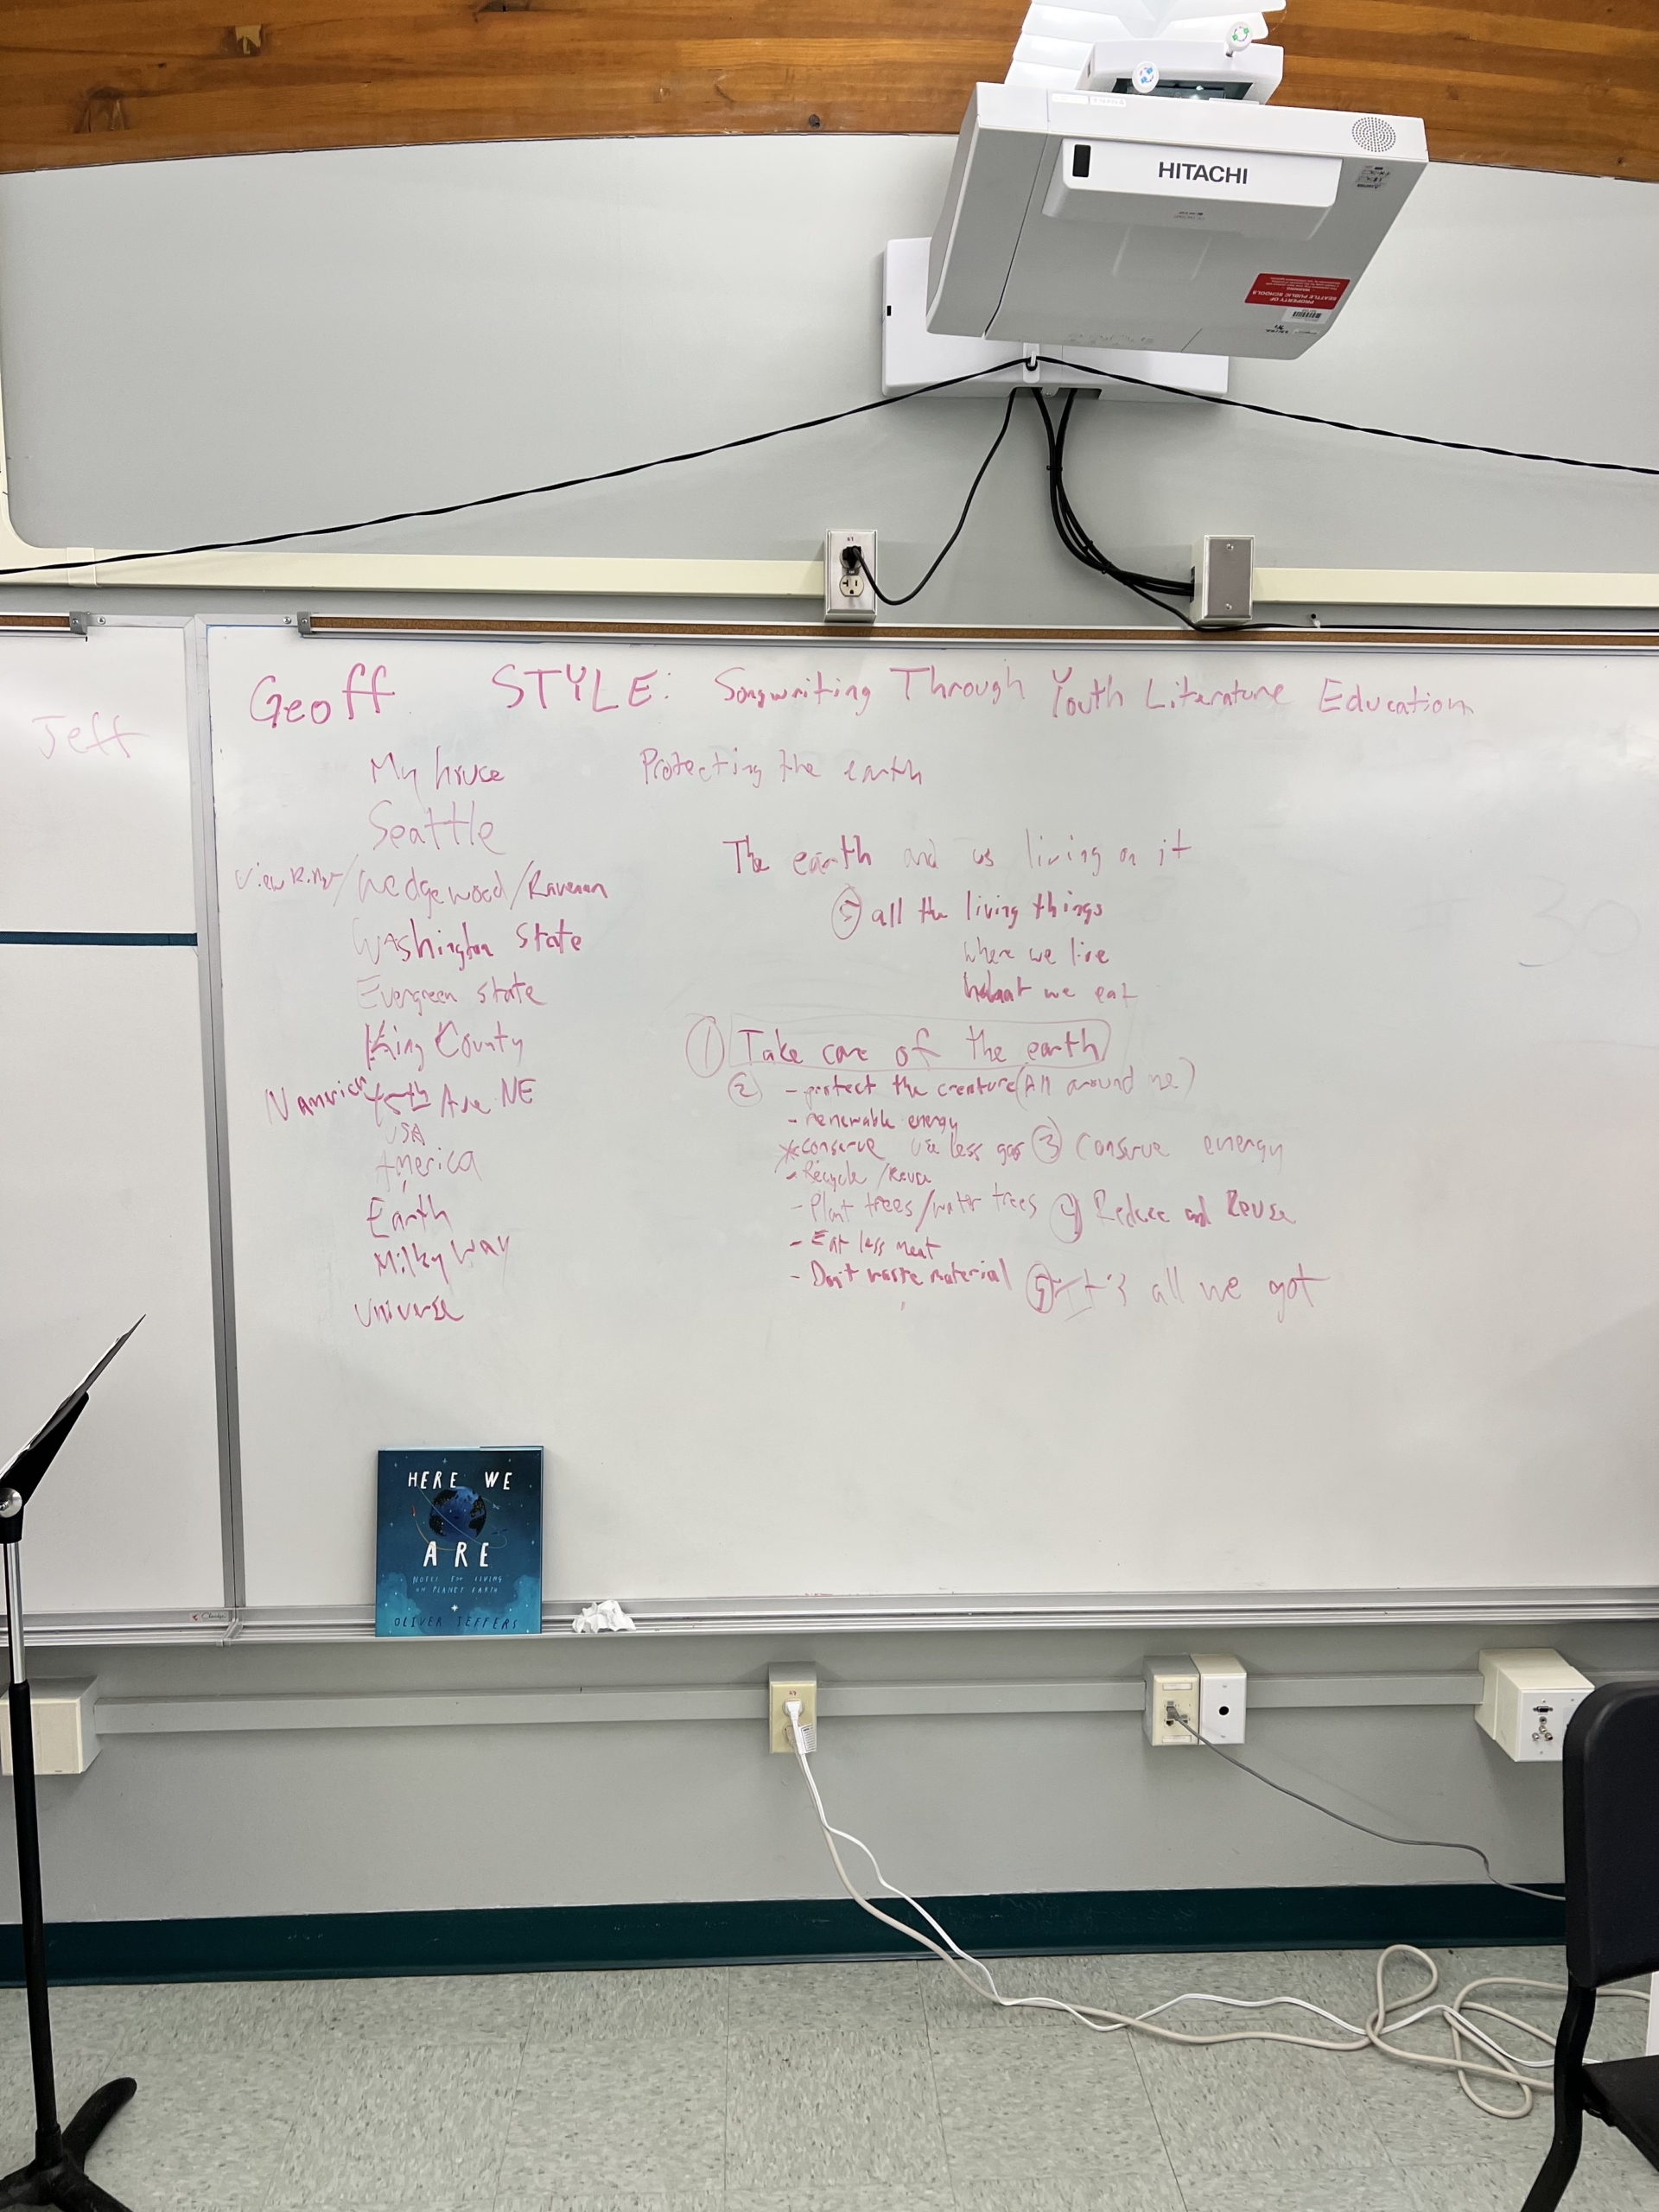 HITACHI
PROPERTY OF
SEATTLE PUBLIC SCHOOLS
Jeff
Geoff STYLE: Songwriting Through Youth Literature Education
My house
Seattle
View Ridge/Wedgewood/Ravenna
Washington State
Evergreen State
King County
Ave NE
USA
America
Earth
Milky Way
Universe
Protecting the earth
The earth and us living on it
all the living things
where we live
what we eat
1 Take care of the earth
2 - protect the creature (All around me)
- renewable energy
* conserve use less gas 3 Conserve energy
- Recycle/Reuse
- Plant trees/water trees 4 Reduce and Reuse
- Eat less meat
- Don't waste material 5 It's all we got
30
HERE WE
ARE
NOTES FOR LIVING
ON PLANET EARTH
OLIVER JEFFERS